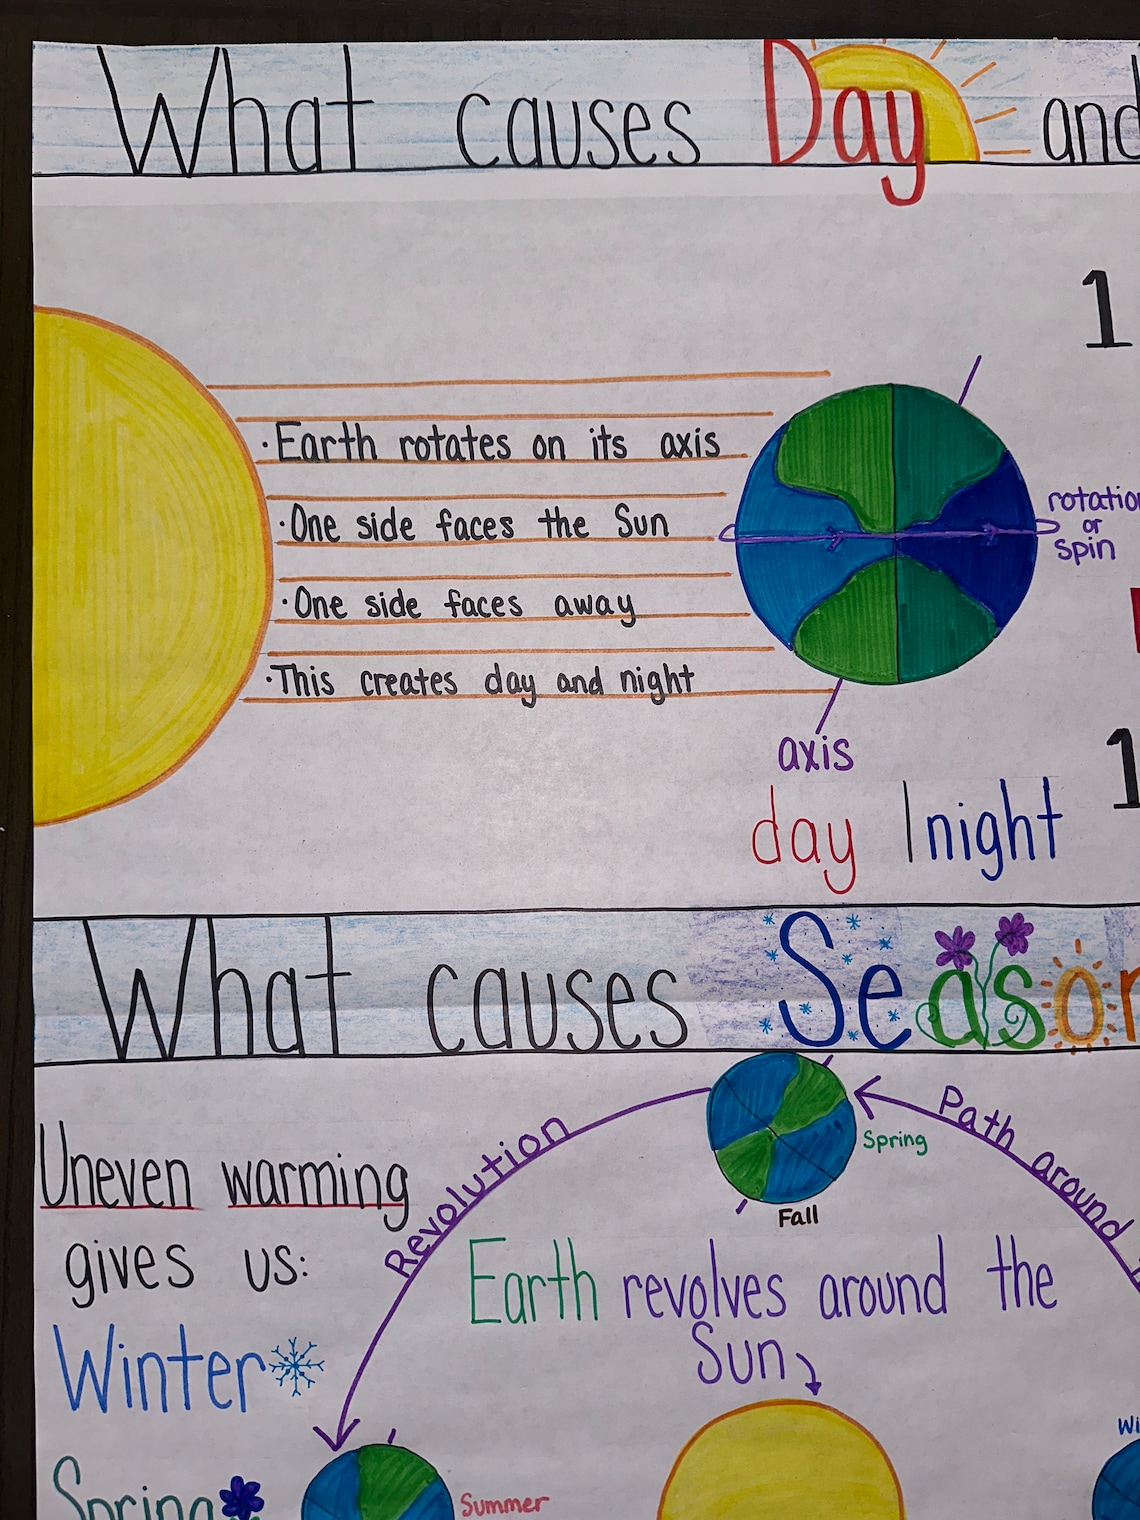 What causes Day and
1
· Earth rotates on its axis
· One side faces the Sun
· One side faces away
· This creates day and night
rotation
or
spin
axis
day | night
1
What causes Season
Uneven warming
gives us:
Winter
Spring
Revolution
Path around
Spring
Fall
Earth revolves around the
Sun
Summer
Wi